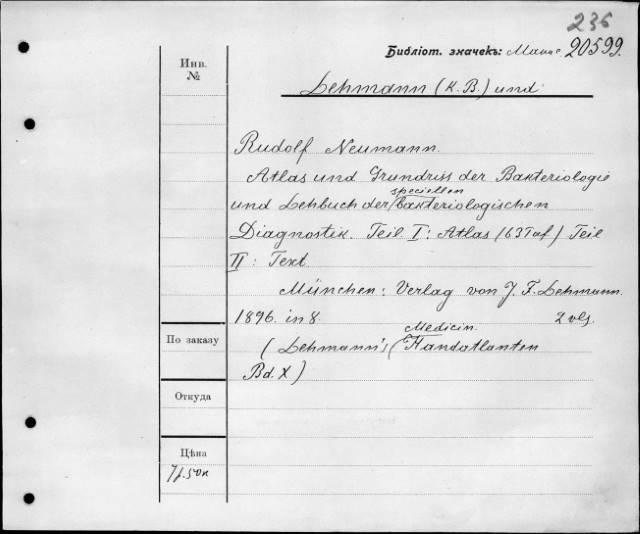 236
Библіот. значекъ: 20599.
Инв.
№
Lehmann (K. B.) und
Rudolf Neumann.
Atlas und Grundriss der Bakteriologie
speciellen
und Lehbuch der bakteriologischen
Diagnostik. Teil I: Atlas (63 Taf) Teil
II: Text.
München: Verlag von J. F. Lehmann.
1896. in 8. 2 vls.
Medicin.
(Lehmann's Handatlanten
Bd. X)
По заказу
Откуда
Цѣна